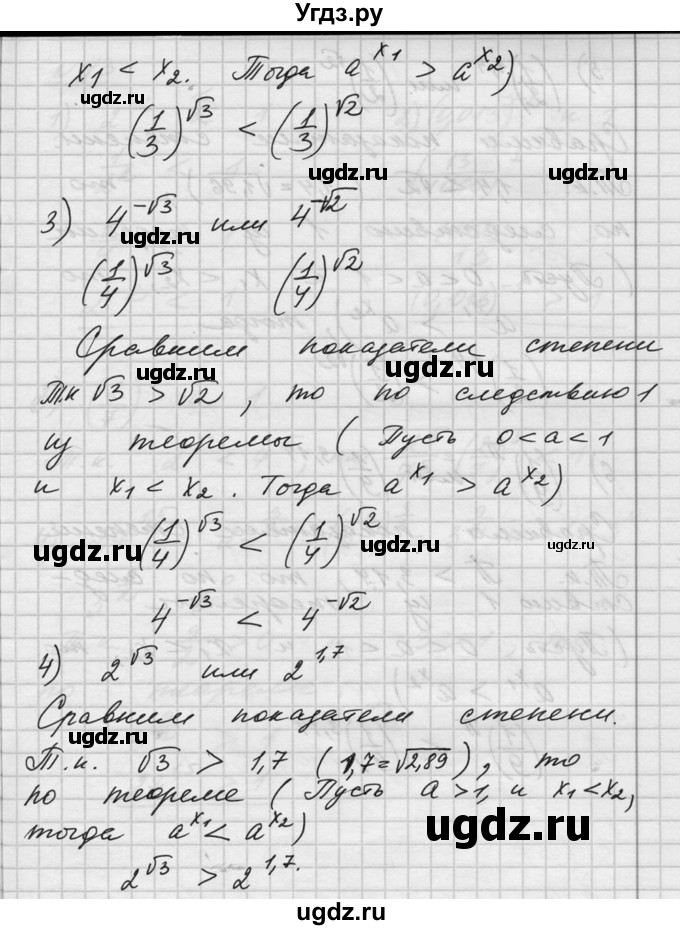 Угдз.ру
x₁ < x₂. Тогда a^x₁ > a^x₂)
ugdz.ru
ugdz.ru
(1/3)^√3 < (1/3)^√2
ugdz.ru
3) 4^-√3 или 4^-√2
ugdz.ru
(1/4)^√3 (1/4)^√2
ugdz.ru
Сравним показатели степени
ugdz.ru
Т.к √3 > √2, то по следствию 1
из теоремы (Пусть 0<a<1
и x₁ < x₂. Тогда a^x₁ > a^x₂)
(1/4)^√3 < (1/4)^√2
ugdz.ru
ugdz.ru
ugdz.ru
4^-√3 < 4^-√2
4) 2^√3 или 2^1,7
ugdz.ru
Сравним показатели степени.
ugdz.ru
Т.к. √3 > 1,7 (1,7=√2,89), то
по теореме (Пусть a>1, и x₁<x₂,
тогда a^x₁ < a^x₂)
ugdz.ru
2^√3 > 2^1,7.
ugdz.ru
ugdz.ru